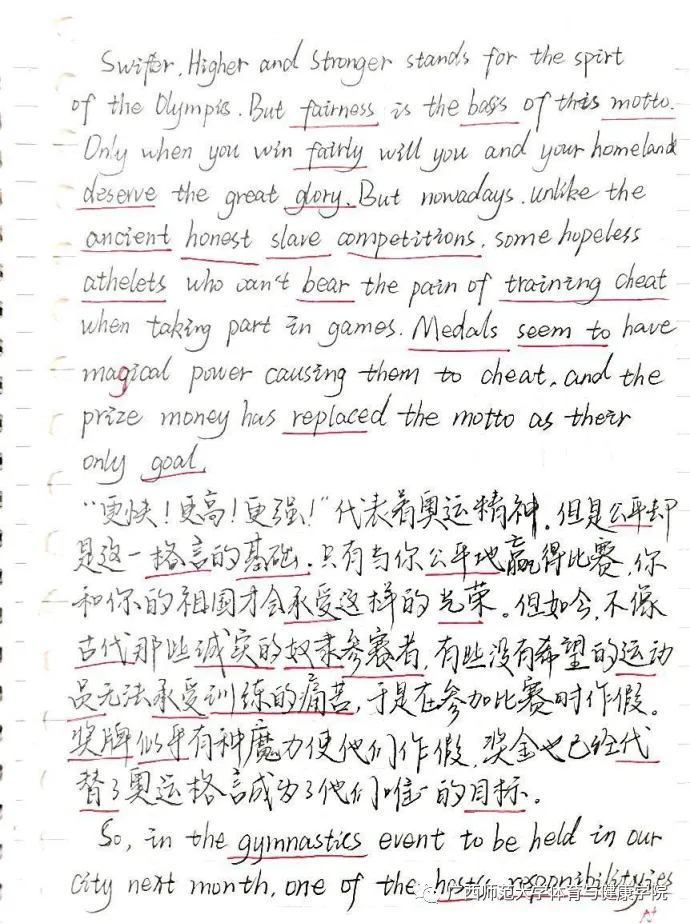 Swifter, Higher and Stronger stands for the spirt
of the Olympics. But fairness is the basis of this motto.
Only when you win fairly will you and your homeland
deserve the great glory. But nowadays, unlike the
ancient honest slave competitions, some hopeless
athelets who can't bear the pain of training cheat
when taking part in games. Medals seem to have
magical power causing them to cheat, and the
prize money has replaced the motto as their
only goal.
“更快！更高！更强！”代表着奥运精神。但是公平却
是这一格言的基础。只有当你公平地赢得比赛，你
和你的祖国才会承受这样的光荣。但如今，不像
古代那些诚实的奴隶参赛者，有些没有希望的运动
员无法承受训练的痛苦，于是在参加比赛时作假。
奖牌似乎有种魔力使他们作假，奖金也已经代
替了奥运格言成为了他们唯一的目标。
So, in the gymnastics event to be held in our
city next month, one of the
广西师范大学体育与健康学院